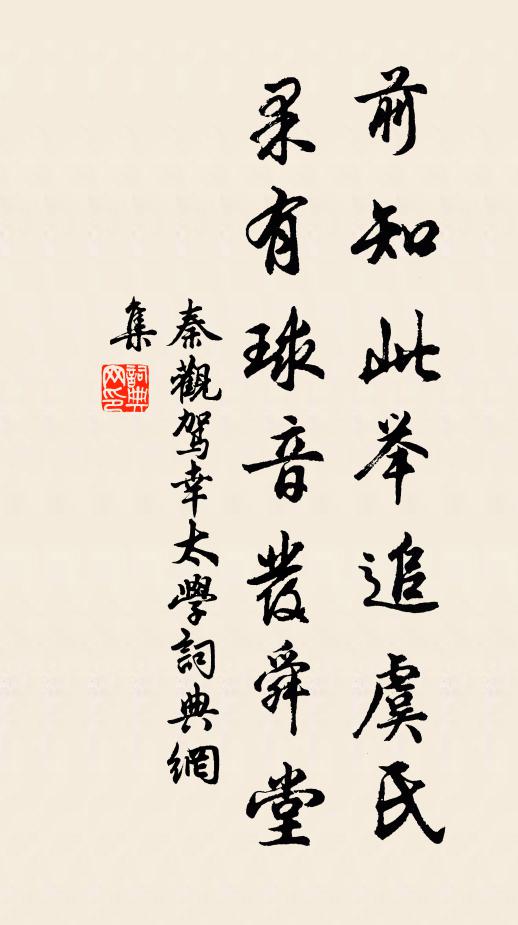 前知此举追虞氏
果有球音發舜堂
秦觀駕幸太學詞典網
集
詞典
网印